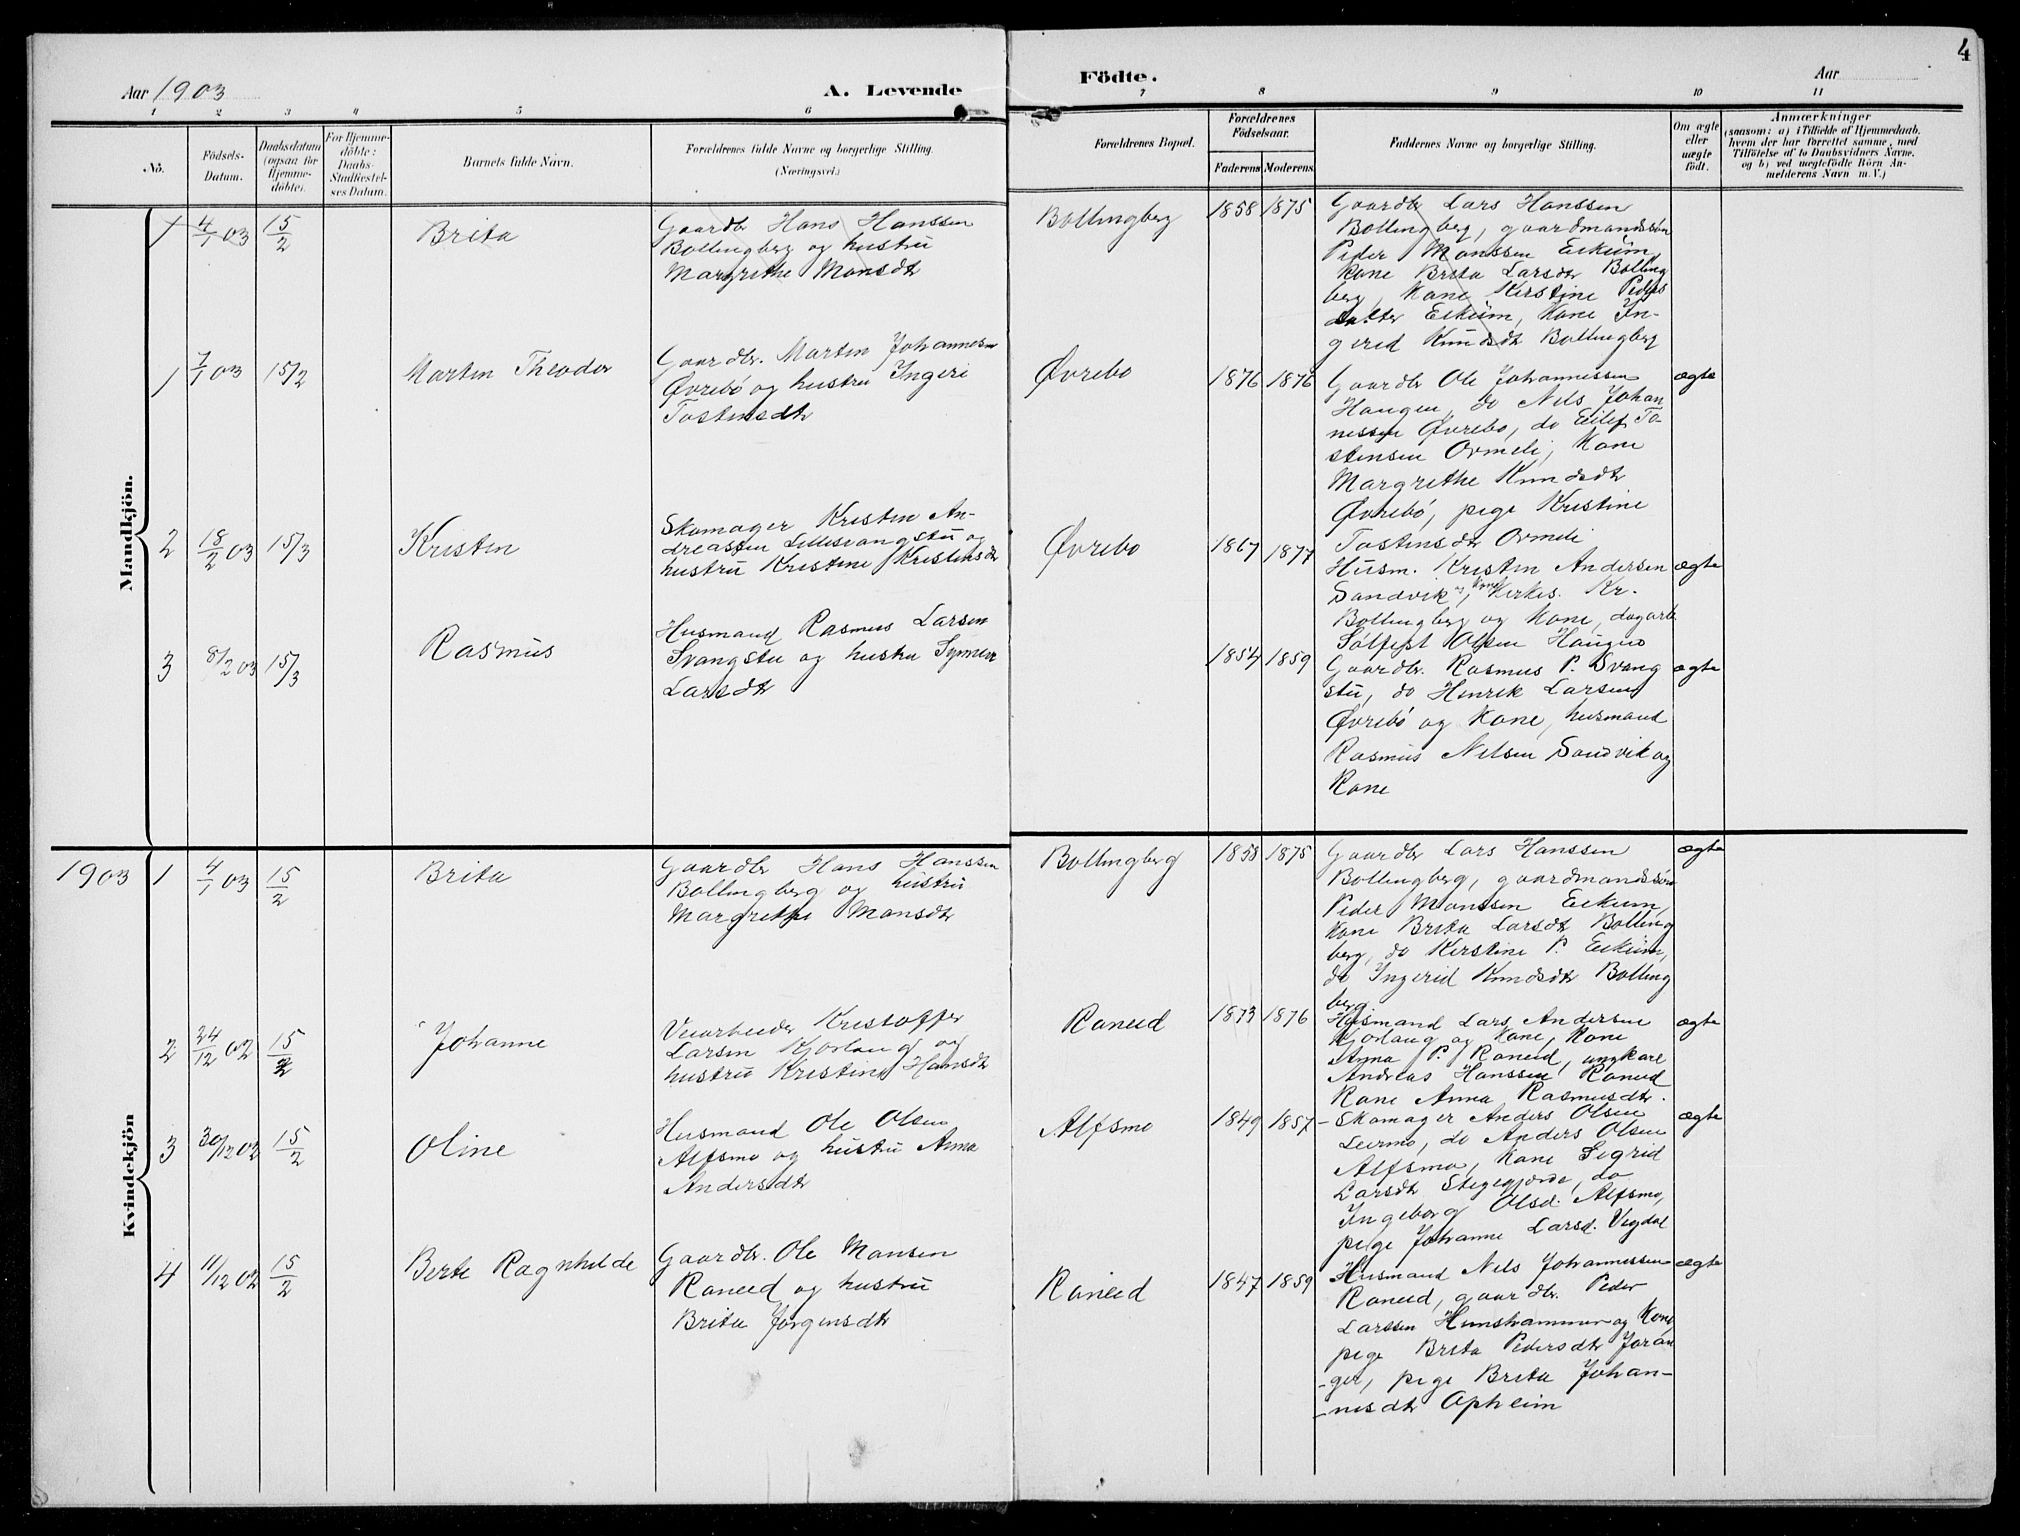 4
Aar 1903
A. Levende
Födte.
Aar
1 2 3 4 5 6 7 8 9 10 11
No.
Födsels-
Datum.
Daabsdatum
(ogsaa for
Hjemme-
döbte).
For Hjemme-
döbte:
Daabs-
Stadfæstel-
ses Datum.
Barnets fulde Navn.
Forældrenes fulde Navne og borgerlige Stilling.
(Næringsvei.)
Forældrenes Bopæl.
Forældrenes
Födselsaar.
Faderens Moderens
Faddernes Navne og borgerlige Stilling.
Om ægte
eller
uægte
födt.
Anmærkninger
(saasom: a) i Tilfælde af Hjemmedaab.
hvem der har forrettet samme, med
Tilföielse af to Daabsvidners Navne.
og b) ved uægtefödte Börn An-
melderens Navn m. V.)
Mandkjön.
1 4/1 03 15/2 Brita
Gaardbr Hans Hanssen
Bollingberg og hustru
Margrethe Monsdt
Bollingberg 1858 1875
Gaardbr Lars Hanssen
Bollingberg, gaardmandssön
Peder Monssen Eikum,
Kone Brita Larsdtr Bolling
berg, Kone Kirstine Peders
datter Eikum, Kone In-
gerid Knudsdt Bollingberg
1 7/1 03 15/2 Martin Theodor
Gaardbr. Martin Johannesen
Øvrebö og hustru Ingeri
Tostensdt
Øvrebo 1876 1876
Gaardbr Ole Johannessen
Haugen, do Nels Johan
nessen Øvrebo, do Eilef To-
stensen Ormeli, Kone
Margrethe Knudsdt
Øvrebö, pige Kristine
Tostensdtr Ormeli
ægte
2 18/2 03 15/3 Kristen
Skomager Kristen An-
dreassen Lillesvangstu og
hustru Kristine Kristensdt
Øvrebo 1867 1877
Husm. Kristen Andersen
Sandvik og Kone, Kirkes. Kr.
Bollingberg og Kone, dagarb
Sölfest Olsen Haugen
ægte
3 8/2 03 15/3 Rasmus
Husmand Rasmus Larsen
Svangstu og hustru Synneve
Larsdt
1854 1859
Gaardbr. Rasmus P. Svang
stu, do Henrik Larsen
Øvrebö og Kone, husmand
Rasmus Nelsen Sandvik og
Kone
ægte
Kvindekjön
1903 1 4/1 03 15/2 Brita
Gaardbr Hans Hanssen
Bollingberg og hustru
Margrethe Monsdt
Bollingberg 1858 1875
Gaardbr Lars Hanssen
Bollingberg, gaardmandssön
Peder Monssen Eikum,
Kone Brita Larsdt Bolling
berg, do Kerstine P. Eikum,
do Ingerid Knudsdt Bolling
berg
ægte
2 24/12 02 15/2 Johanne
Veiarbeider Kristoffer
Larsen Kjorlaug og
hustru Kristine Hansdt
Raneid 1873 1876
Husmand Lars Andersen
Kjorlaug og Kone, Kone
Anna P. Raneid, ungkarl
Andreas Hanssen Raneid
Kone Anna Rasmusdt.
ægte
3 30/12 02 15/2 Oline
Husmand Ole Olsen
Alfsmo og hustru Anna
Andersdt
Alfsmo 1849 1857
Skomager Anders Olsen
Leirmo, do Anders Olsen
Alfsmo, Kone Sigrid
Larsdt Stegegjerde, do
Ingeborg Olsd. Alfsmo,
pige Johanne Larsd. Vigdal
ægte
4 11/12 02 15/2 Berte Ragnhilde
Gaardbr. Ole Monsen
Raneid og hustru
Brita Jørgensdt
Raneid 1847 1859
Husmand Nils Johannessen
Raneid, gaardbr. Peder
Larssen Hunshammer og Kone,
pige Brita Pedersdtr Joran
-ger, pige Brita Johan-
-nisdt Opheim
ægte